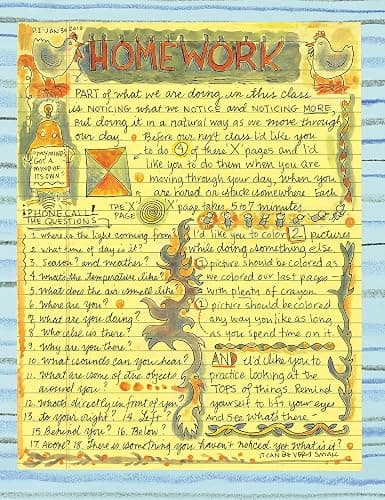 P.I - JAN 30 2010
HOMEWORK
PART of what we are doing in this class
is NOTICING what we NOTICE and NOTICING MORE,
But doing it in a natural way as we move through
our day! Before our next class I'd like you
to do 4 of these X pages and I'd
like you to do them when you are
moving through your day, when you
are bored or stuck somewhere. Each
X page takes 5 to 7 minutes
MY MIND'S
GOT A
MIND OF
ITS OWN
THE 'X'
PAGE
PHONE CALL!
THE QUESTIONS
1. where is the light coming from?
2. what time of day is it?
3. Season? and weather?
4. What's the temperature like?
5. What does the air smell like?
6. Where are you?
7. What are you doing?
8. Who else is there?
9. Why are you there?
10. What sounds can you hear?
11. What are some of the objects
around you?
12. What's directly in front of you?
13. To your right? 14. Left?
15. Behind you? 16. Below?
17. Above? 18. There is something you haven't noticed yet. What is it?
IT CAN BE VERY SMALL
I'd like you to color 2 pictures
while doing something else
1 picture should be colored as
we colored our last pages
with plenty of crayon.
1 picture should be colored
any way you like as long
as you spend time on it.
AND I'd like you to
practice looking at the
TOPS of things. Remind
yourself to lift your eyes
And see what's there -